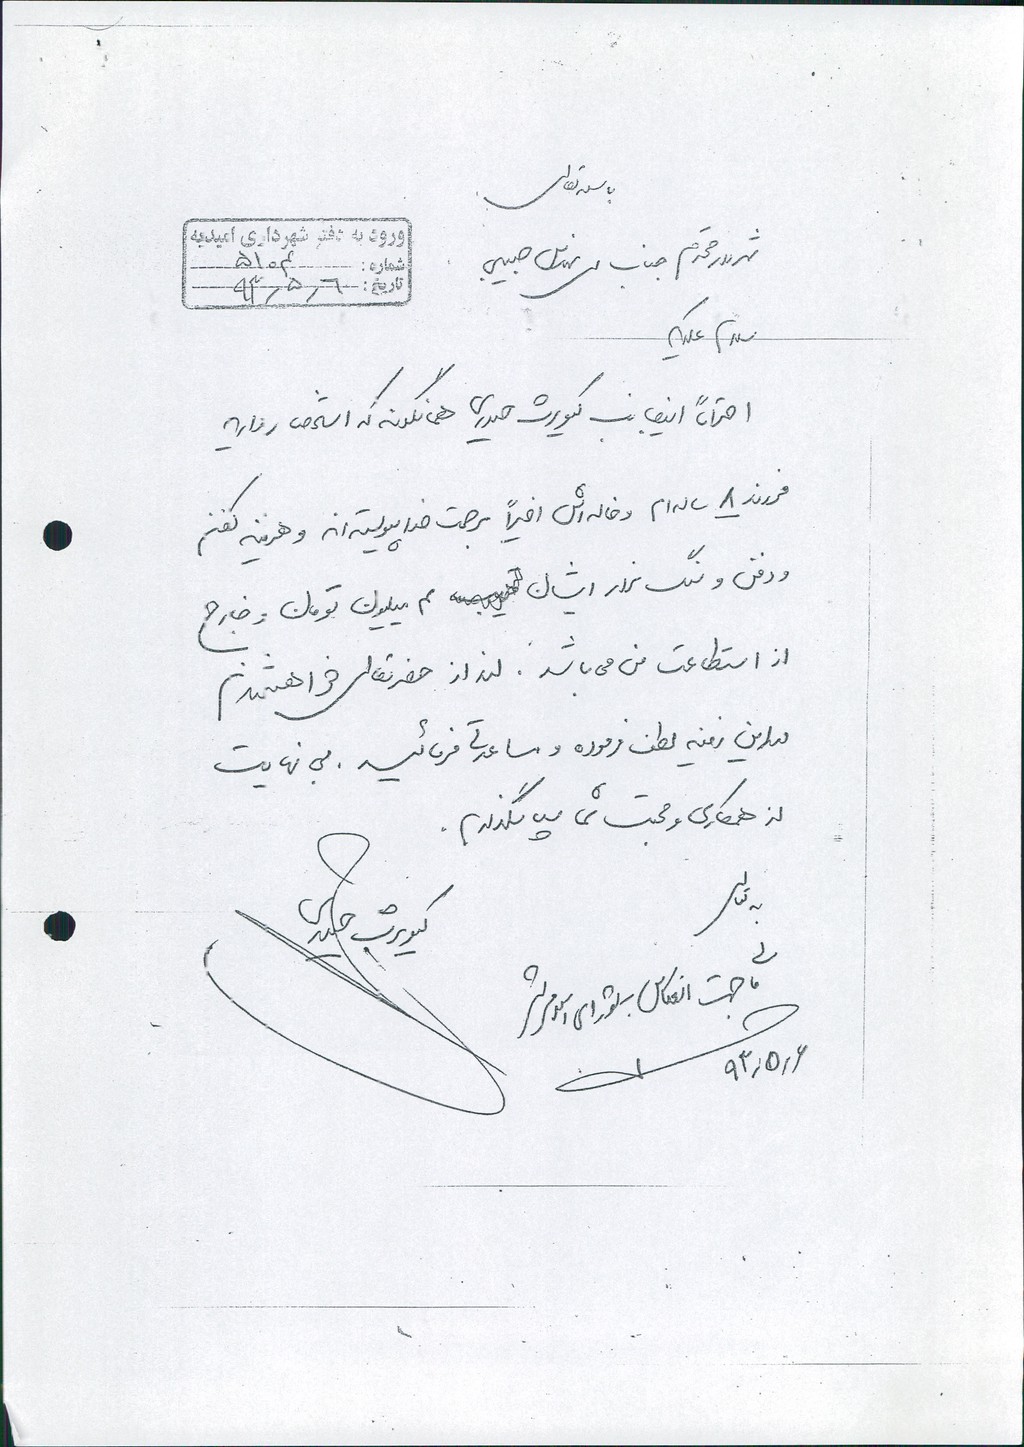 باسمه تعالی
ورود به دفتر شهرداری امیدیه
شماره: ۵۱۰۴
تاریخ: ۹۳/۵/۶
شهردار محترم جناب مهندس حبیبی
سلام علیکم
احتراماً اینجانب کیومرث حیدری همانگونه که استحضار دارید
فرزند ۸ ساله ام و خاله اش اخیراً برحمت خدا پیوسته اند و هزینه کفن
و دفن و سنگ مزار ایشان ۳ میلیون تومان و خارج
از استطاعت من می باشد. لذا از حضرتعالی خواهشمندم
در این زمینه لطف فرموده و مساعدتی فرمائید. بی نهایت
از همکاری و محبت شما سپاسگذارم.
کیومرث حیدری
جهت انعکاس به شورای اسلامی شهر
۹۳/۵/۶